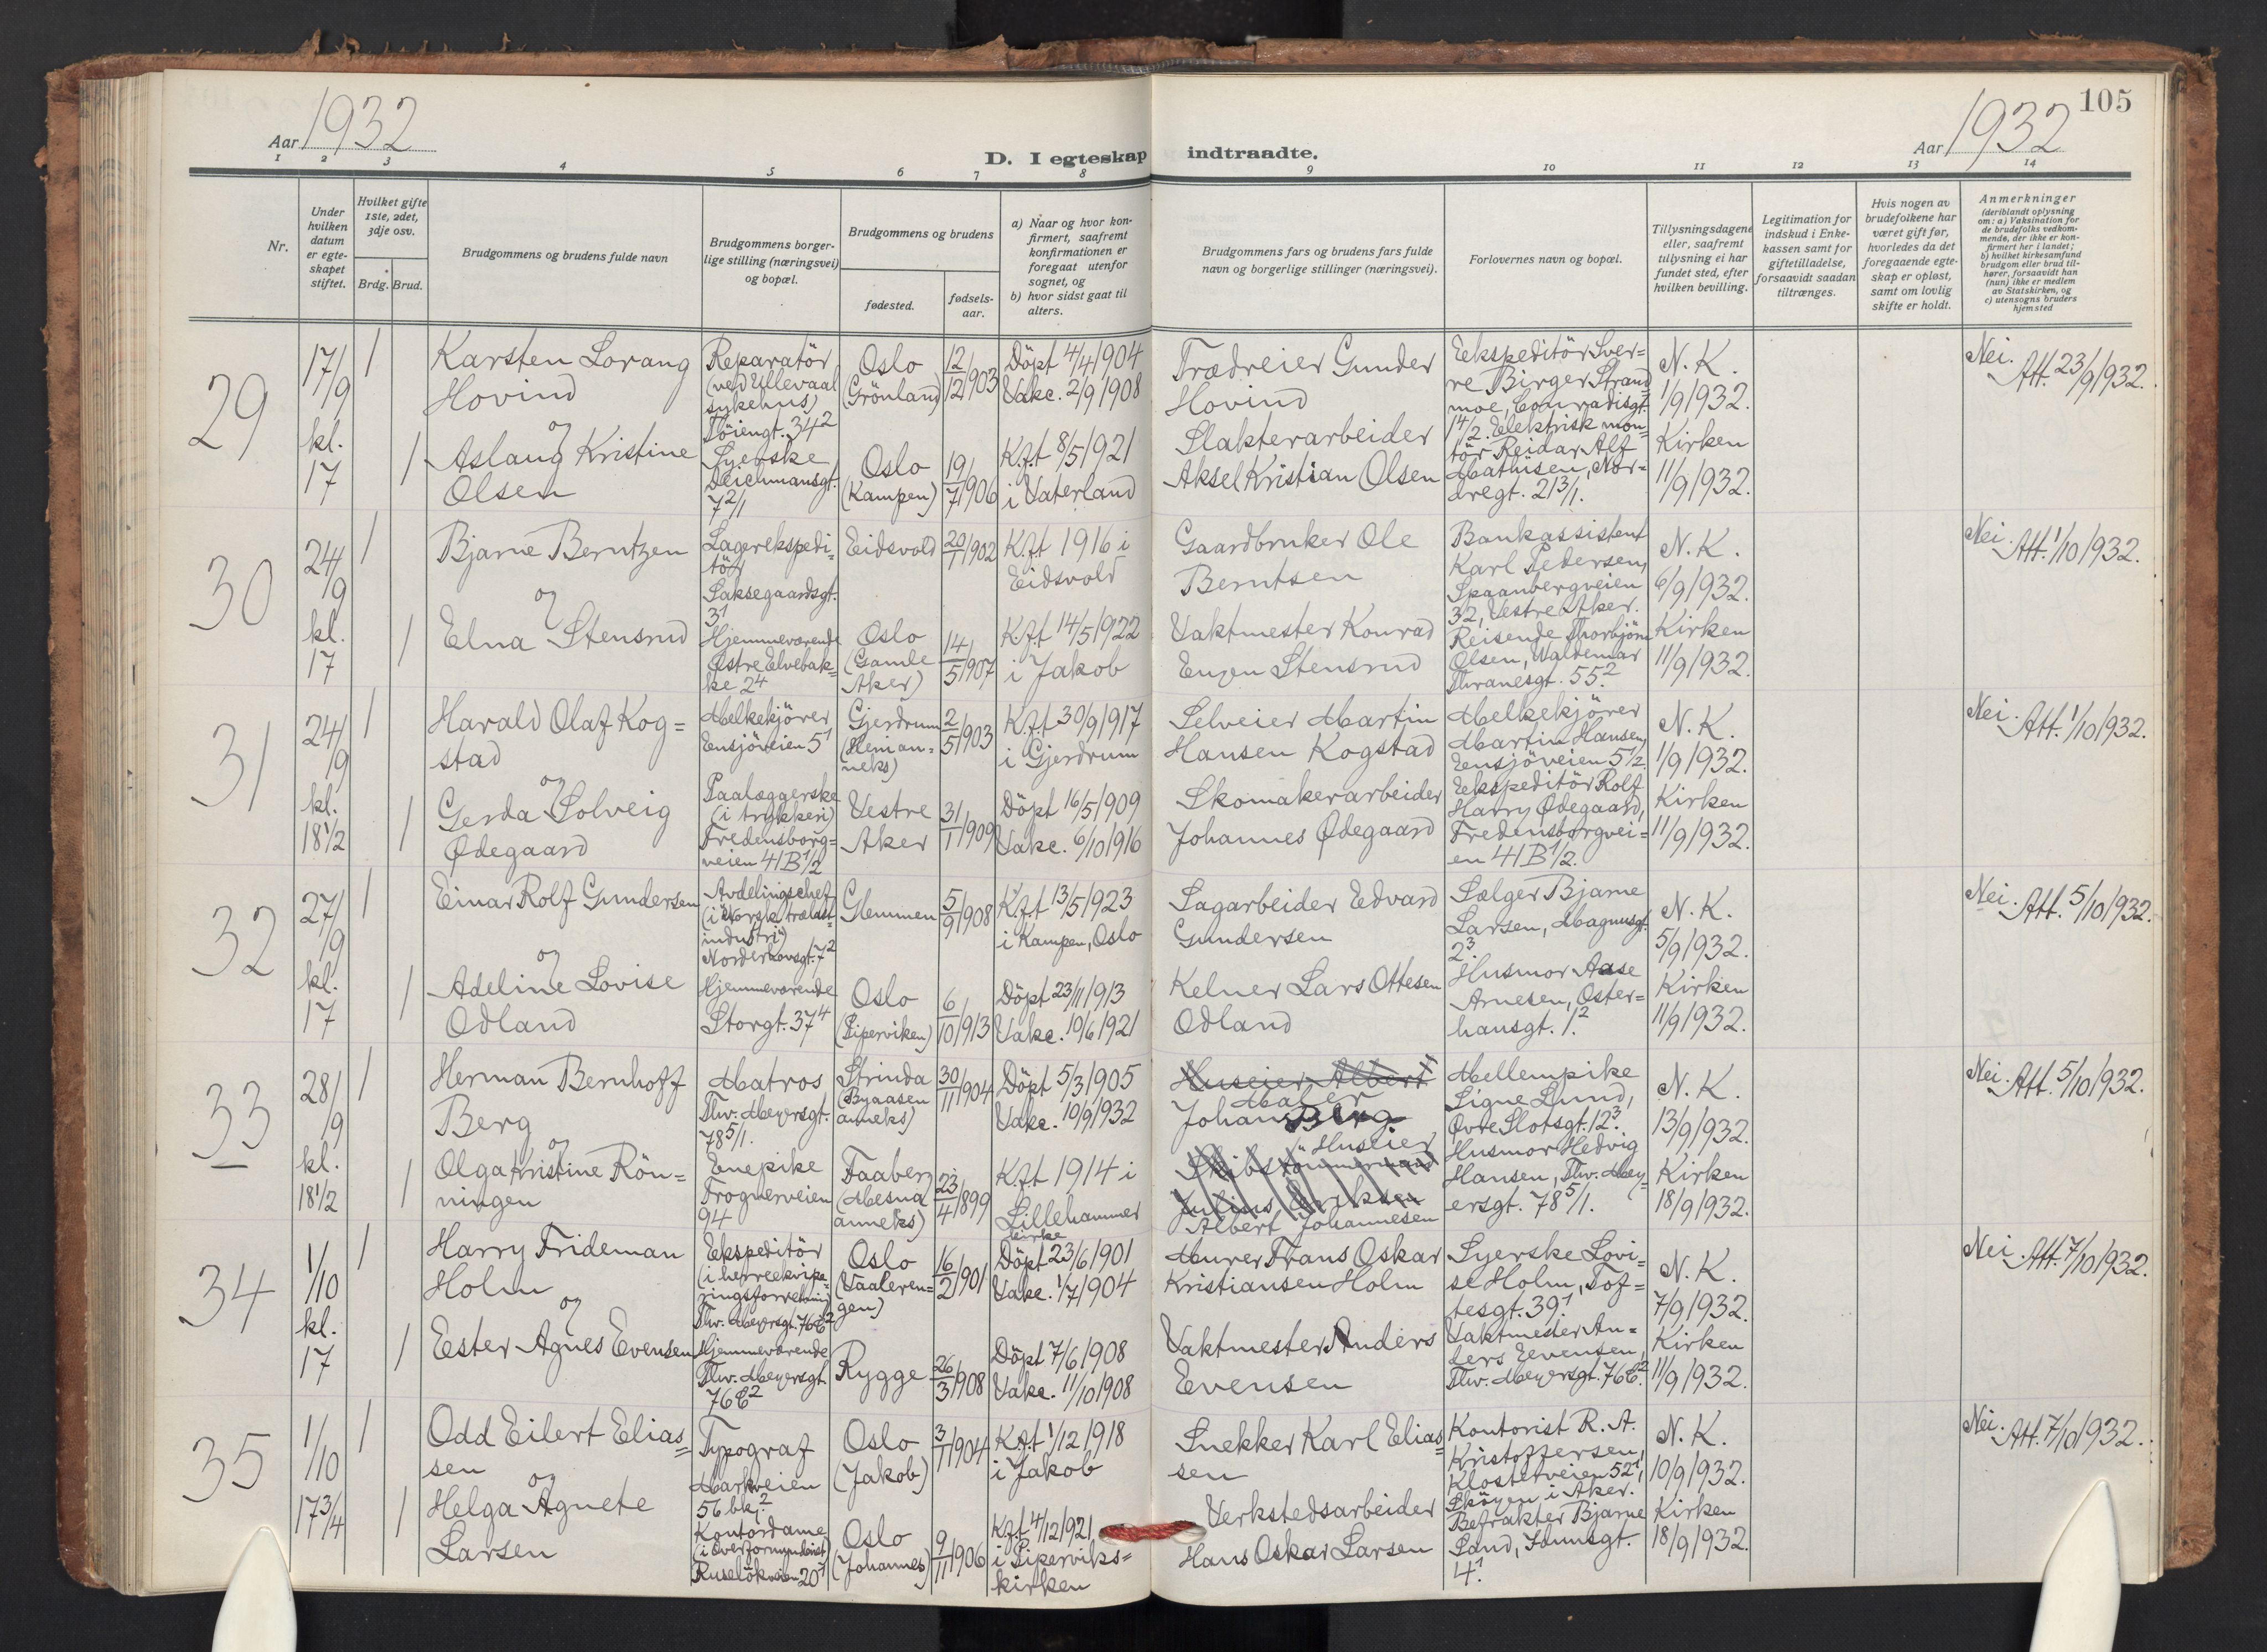 Aar 1932
D. I egteskap indtraadte.
Aar 1932
105
1 2 3 4 5 6 7 8 9 10 11 12 13 14
Nr.
Under hvilken datum er egteskapet stiftet.
Hvilket gifte 1ste, 2det, 3dje osv.
Brdg. Brud.
Brudgommens og brudens fulde navn
Brudgommens borgerlige stilling (næringsvei) og bopæl.
Brudgommens og brudens
fødested.
fødselsaar.
a) Naar og hvor konfirmert, saafremt konfirmationen er foregaat utenfor sognet, og
b) hvor sidst gaat til alters.
Brudgommens fars og brudens fars fulde navn og borgerlige stillinger (næringsvei).
Forlovernes navn og bopæl.
Tillysningsdagene eller, saafremt tillysning ei har fundet sted, efter hvilken bevilling.
Legitimation for indskud i Enkekassen samt for giftetilladelse, forsaavidt saadan tiltrænges.
Hvis nogen av brudefolkene har været gift før, hvorledes da det foregaaende egteskap er opløst, samt om lovlig skifte er holdt.
Anmerkninger
(deriblandt oplysning om: a) Vaksination for de brudefolks vedkommende, der ikke er konfirmert her i landet;
b) hvilket kirkesamfund brudgom eller brud tilhører, forsaavidt han (hun) ikke er medlem av Statskirken, og
c) utensogns bruders hjemsted
29
17/9
kl.
17
1
Karsten Lorang
Hovind
Reparatör
(ved Ullevaal
sykehus)
Töiengt. 34²
Oslo
(Grönland)
12/12 1903
Döpt 4/4 1904
Vakc. 2/9 1908
Trædreier Gunder
Hovind
Ekspeditör Sver=
re Birger Strand
moe, Conradisgt.
14/2. Elektrisk mon=
tör Reidar Alf
Mathisen, Nor=
dregt. 21 3/1.
N. K.
1/9 1932.
Kirken
11/9 1932.
Nei. Att. 23/9 1932.
og
1
Aslaug Kristine
Olsen
Syerske
Deichmansgt.
7 2/1
Oslo
(Kampen)
19/7 1906
K.f.t 8/5 1921
i Vaterland
Slakterarbeider
Aksel Kristian Olsen
30
24/9
kl.
17
1
Bjarne Berntzen
Lagerekspedi=
tör
Saksegaardsgt.
3¹
Eidsvold
20/1 1902
K.f.t 1916 i
Eidsvold
Gaardbruker Ole
Berntsen
Bankassistent
Karl Pedersen,
Spaanbergveien
32, Vestre Aker.
Reisende Thorbjörn
Olsen, Waldemar
Thranesgt. 55².
N. K.
6/9 1932.
Kirken
11/9 1932.
Nei. Att. 1/10 1932.
og
1
Elna Stensrud
Hjemmeværende
Østre Elvebak=
ke 2⁴
Oslo
(Gamle
Aker)
14/5 1907
K.f.t 14/5 1922
i Jakob
Vaktmester Konrad
Eugen Stensrud
31
24/9
kl.
18 1/2
1
Harald Olaf Kog=
stad
Melkekjörer
Ensjöveien 5¹
Gjerdrum
(Heni an=
neks)
2/5 1903
K.f.t 30/9 1917
i Gjerdrum
Selveier Martin
Hansen Kogstad
Melkekjörer
Martin Hansen,
Ensjöveien 5 1/2.
Ekspeditör Rolf
Harry Ødegaard,
Fredensborgvei=
en 41 B 1/2.
N. K.
1/9 1932.
Kirken
11/9 1932.
Nei. Att. 1/10 1932.
og
1
Gerda Solveig
Ødegaard
Paalæggerske
(i trykkeri)
Fredensborg=
veien 41 B 1/2
Vestre
Aker
31/1 1909
Döpt 16/5 1909
Vakc. 6/10 1916
Skomakerarbeider
Johannes Ødegaard
32
27/9
kl.
17
1
Einar Rolf Gundersen
Avdelingschef
(i "Norsk trælast
industri")
Norderhovsgt. 7²
Glemmen
5/9 1908
K.f.t 13/5 1923
i Kampen, Oslo
Sagarbeider Edvard
Gundersen
Sælger Bjarne
Larsen, Magnusgt.
2³.
Husmor Aase
Arnesen, Oster=
hausgt. 1².
N. K.
5/9 1932.
Kirken
11/9 1932.
Nei. Att. 5/10 1932.
og
1
Adeline Lovise
Odland
Hjemmeværende
Storgt. 37⁴
Oslo
(Piperviken)
6/10 1913
Döpt 23/11 1913
Vakc. 10/6 1921
Kelner Lars Ottesen
Odland
33
28/9
kl.
18 1/2
1
Herman Bernhoff
Berg
Matros
Thv. Meyersgt.
78 5/1.
Strinda
(Byaasen
anneks)
30/11 1904
Döpt 5/3 1905
Vakc. 10/9 1932
Huseier Albert
Maler
Johan Berg
Mellempike
Signe Lund,
Øvre Slotsgt. 12³.
Husmor Hedvig
Hansen, Thv. Mey=
ersgt. 78 5/1.
N. K.
13/9 1932.
Kirken
18/9 1932.
Nei. Att. 5/10 1932.
og
1
Olga Kristine Rön=
ningen
Enepike
Frognerveien
94
Faaberg
(Mesna
anneks)
23/4 1899
K.f.t 1914 i
Lillehammer
kirke
Huseier
Skibstömmermand
Julius Eriksen
Albert Johannesen
34
1/10
kl.
17
1
Harry Frideman
Holm
Ekspeditör
(i herreekvipe=
ringsforretning)
Thv. Meyersgt. 76 E²
Oslo
(Vaaleren=
gen)
16/2 1901
Döpt 23/6 1901
Vakc. 1/7 1904
Murer Frans Oskar
Kristiansen Holm
Syerske Lovi=
se Holm, Tof=
tesgt. 39¹.
Vaktmester An=
ders Evensen,
Thv. Meyersgt. 76 E².
N. K.
7/9 1932.
Kirken
11/9 1932.
Nei. Att. 7/10 1932.
og
1
Ester Agnes Evensen
Hjemmeværende
Thv. Meyersgt.
76 E²
Rygge
26/3 1908
Döpt 7/6 1908
Vakc. 11/10 1908
Vaktmester Anders
Evensen
35
1/10
17 3/4
1
Odd Eilert Elias=
sen
Typograf
Markveien
56 bk.²
Oslo
(Jakob)
3/1 1904
K.f.t 1/12 1918
i Jakob
Snekker Karl Elias=
sen
Kontorist R. A.
Kristoffersen,
Klosterveien 52¹,
Sköyen i Aker.
Befrakter Bjarne
Sand, Idunsgt.
4¹.
N. K.
10/9 1932.
Kirken
18/9 1932.
Nei. Att. 7/10 1932.
og
1
Helga Agnete
Larsen
Kontordame
(i Overformynderiet)
Ruselökveien 20¹
Oslo
(Johannes)
9/11 1906
K.f.t 4/12 1921
i Piperviks=
kirken
Verkstedsarbeider
Hans Oskar Larsen